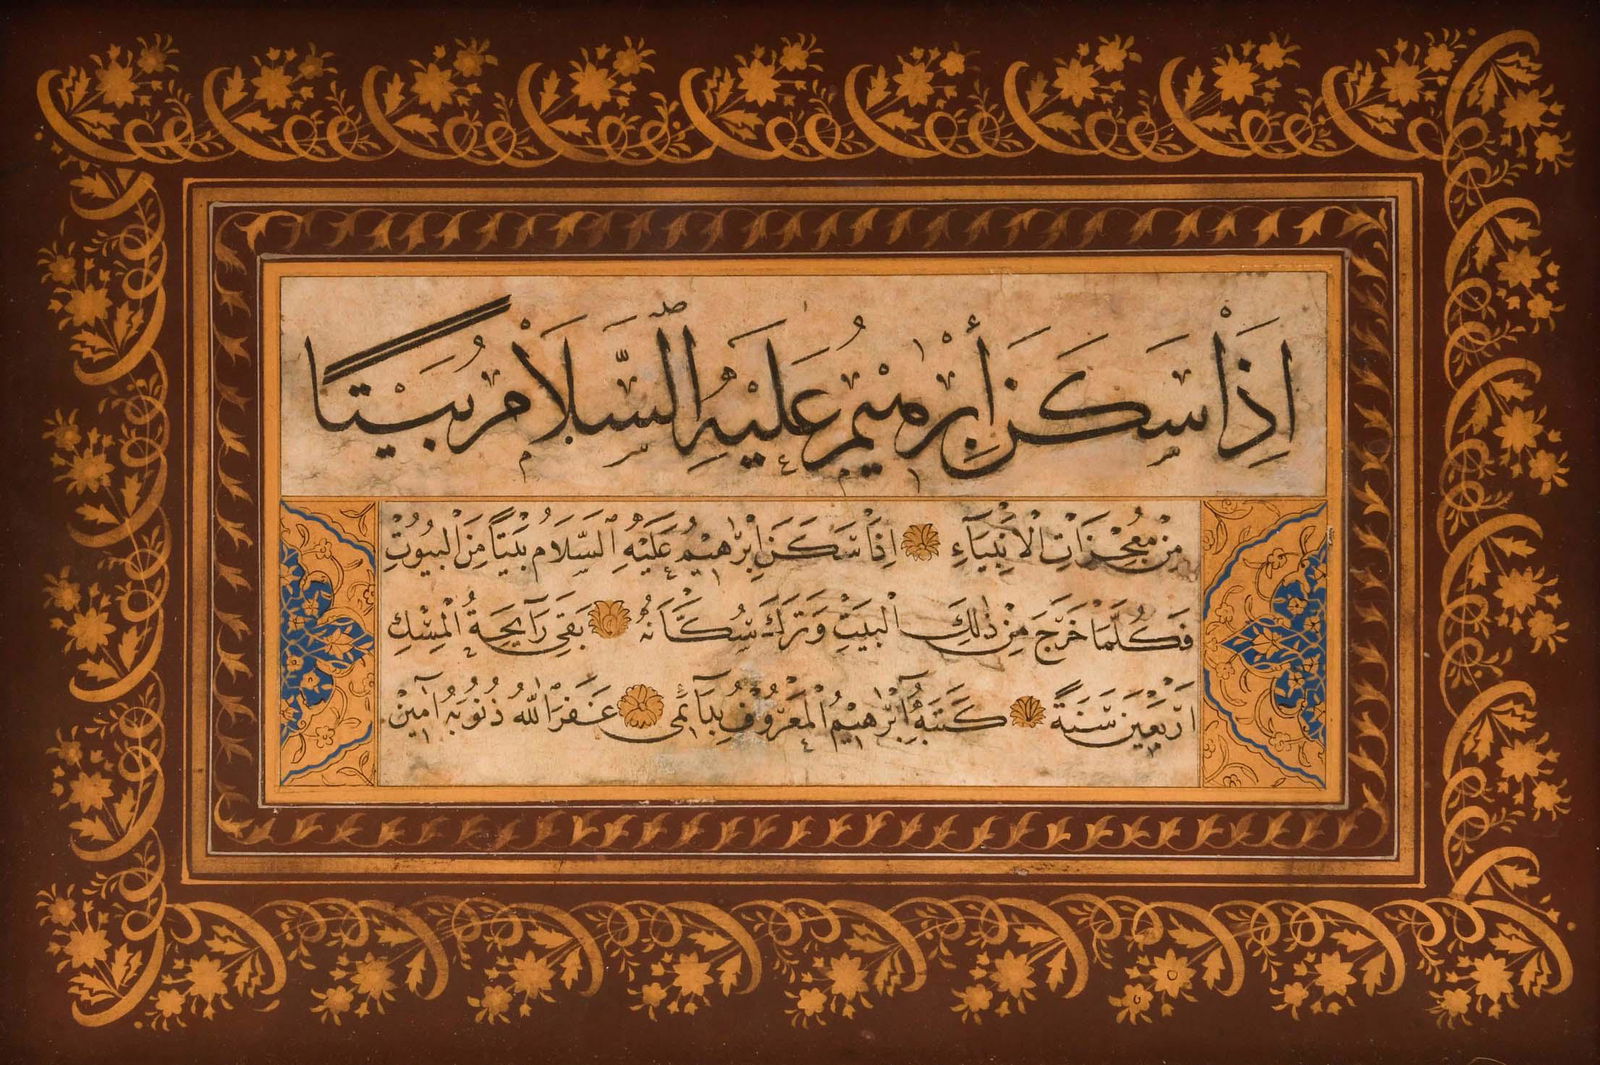 اِذَا سَكَنَ اِبْرٰهِيمُ عَلَيْهِ السَّلَامُ بَيْتًا
مِنْ مُعْجِزَاتِ الْاَنْبِيَاءِ اِذَا سَكَنَ اِبْرٰهِيمُ عَلَيْهِ السَّلَامُ بَيْتًا مِنَ الْبُيُوتِ
فَكُلَّمَا خَرَجَ مِنْ ذٰلِكَ الْبَيْتِ وَتَرَكَ سُكَّانَهُ بَقِيَ رَايِحَةُ الْمِسْكِ
اَرْبَعِينَ سَنَةً كَتَبَهُ اِبْرٰهِيمُ الْمَعْرُوفُ غَفَرَ اللّٰهُ ذُنُوبَهُ اٰمِينَ